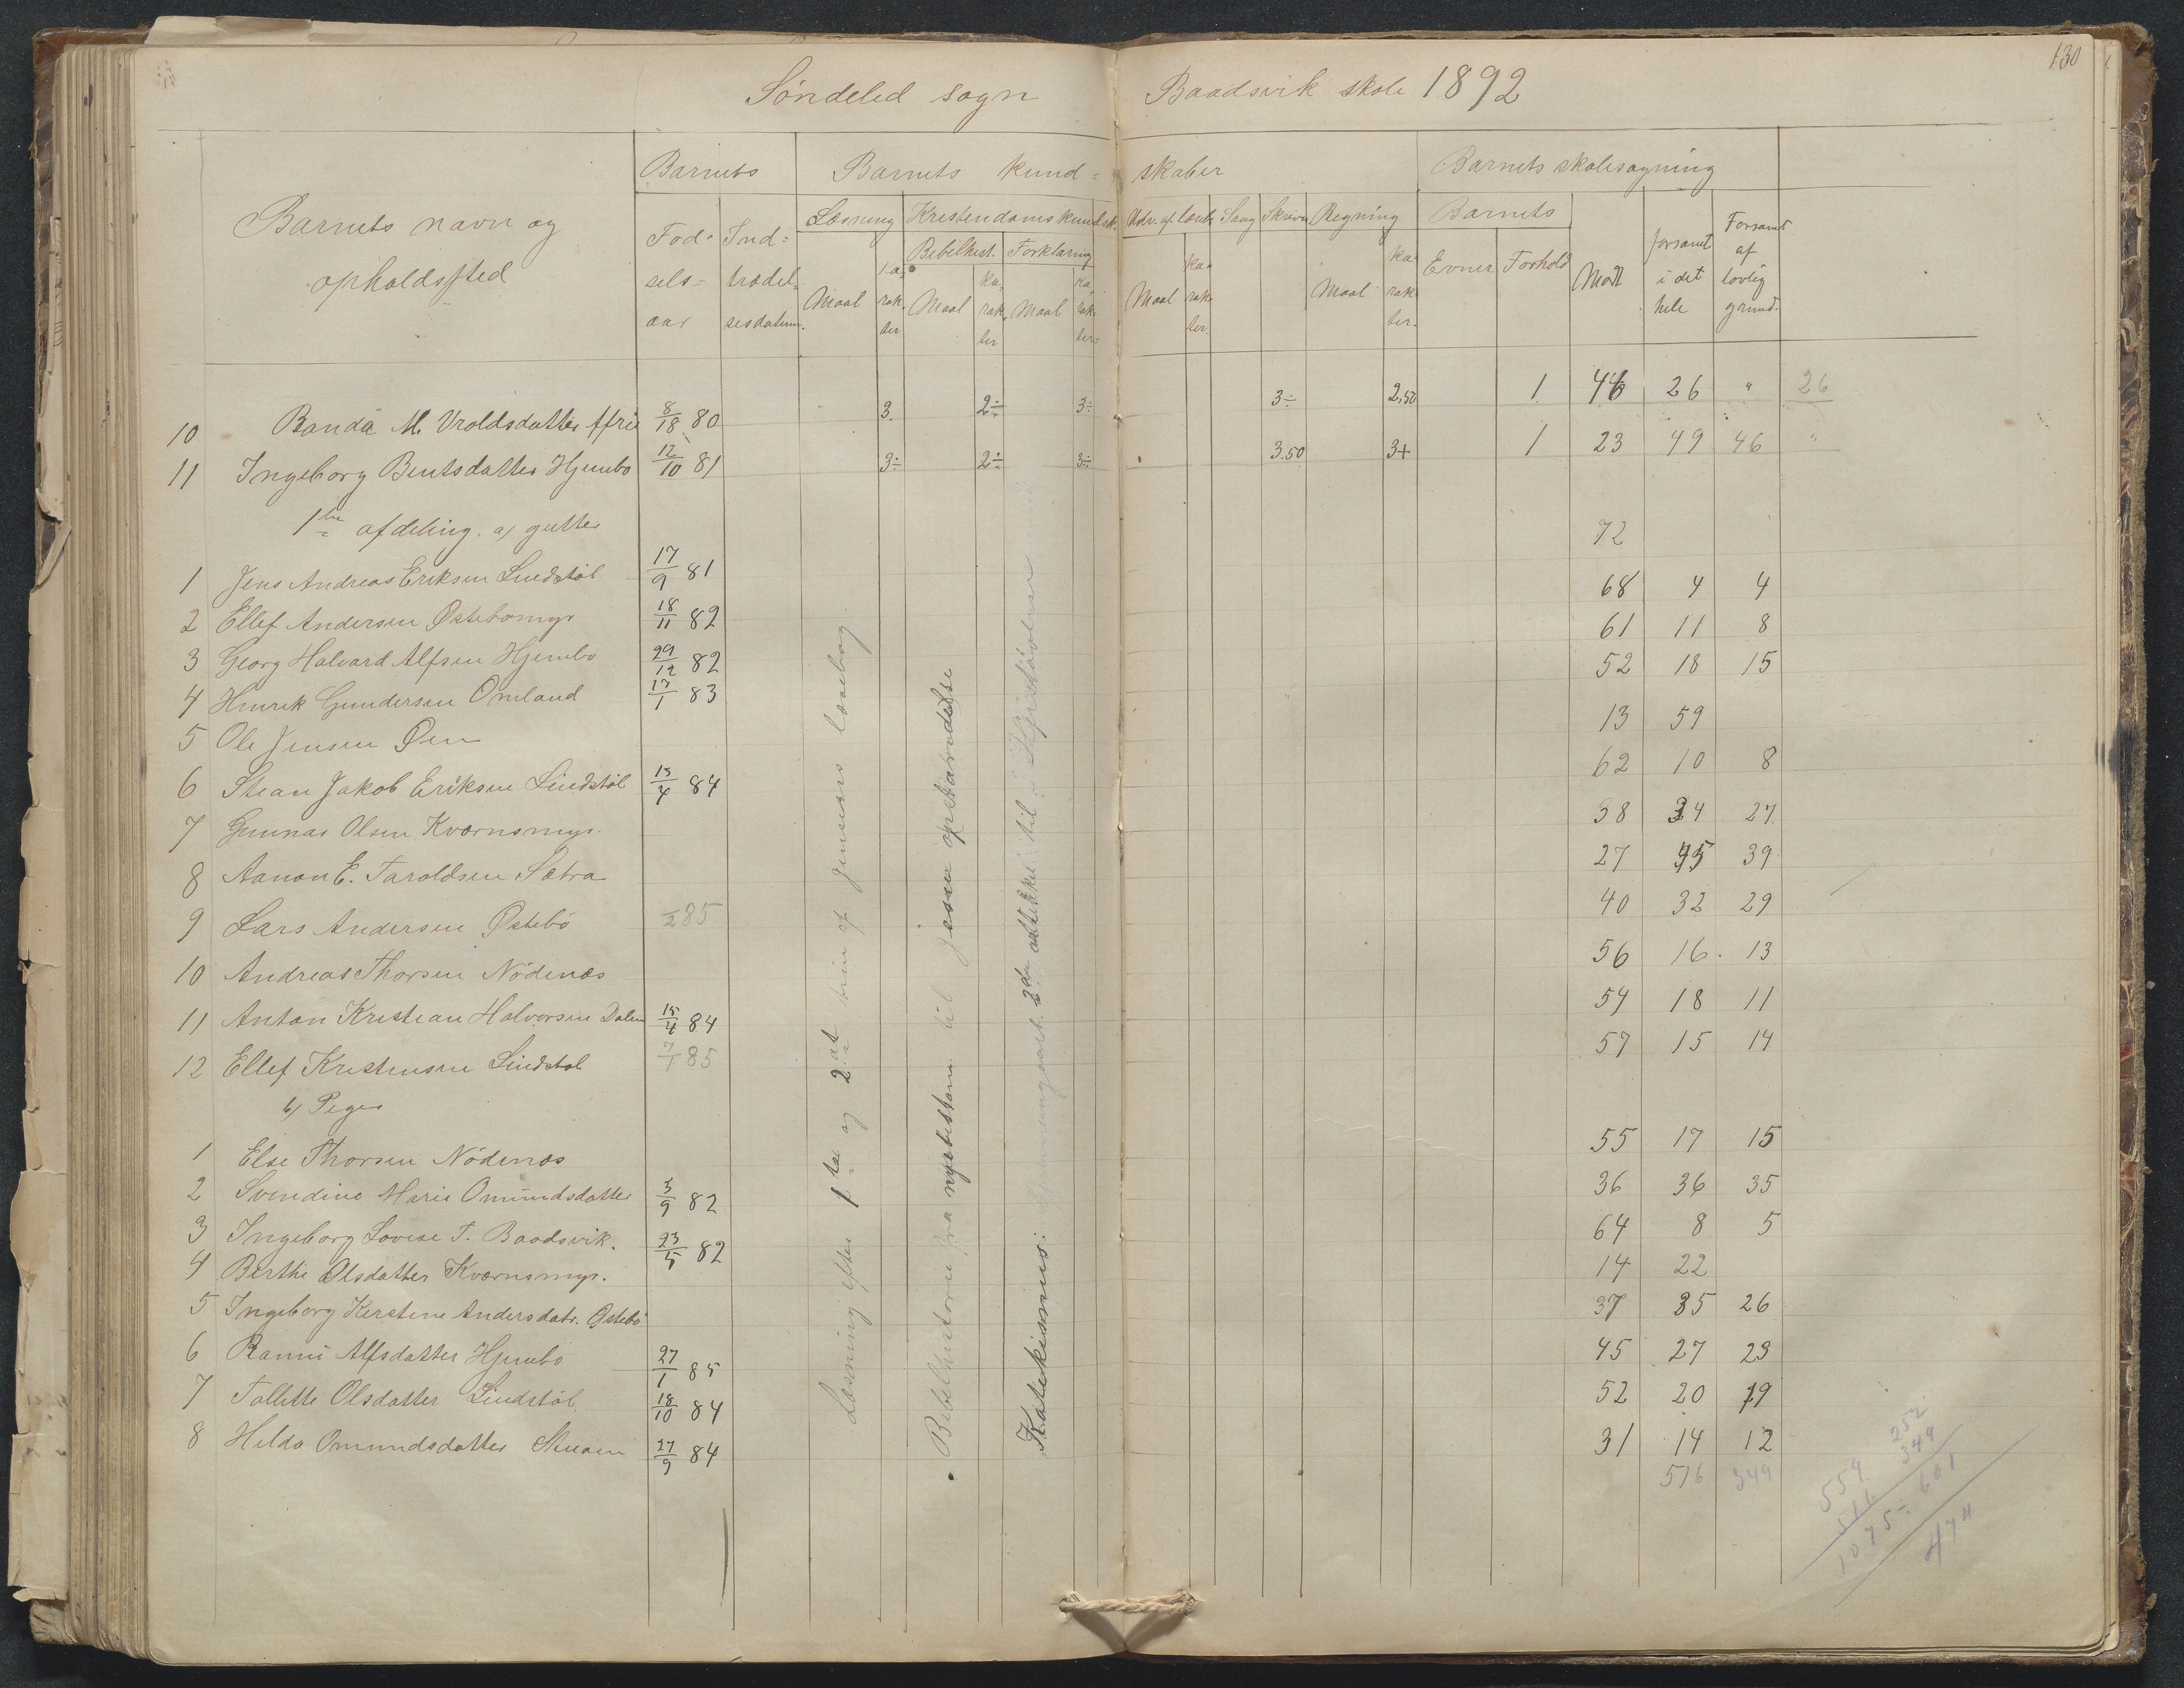 130
Söndeled sogn Baadsvik skole 1892
Barnets navn og opholdssted
Barnets
Fødselsaar Indtrædelsesdatum.
Barnets kund= skaber
Læsning Kristendomskundsk. Udv. af læseb. Sang Skrivn Regning
Bibelhist. Forklaring
Maal karakter Maal karakter Maal karakter Maal karakter. Maal karakter.
Barnets skolesøgning
Barnets
Evner Forhold Mødt forsømt i det hele Forsømt af lovlig grund.
10 Randa M. Vroldsdatter 8/18 80 3. 2÷ 3÷ 3÷ 2,50 1 46 26 " 26
11 Ingeborg Bentsdatter Hjembo 12/10 81 3÷ 2÷ 3÷ 3.50 3+ 1 23 49 46 "
1ste afdeling. a) gutter 72
1 Jens Andreas Eriksen Lindstöl 17/9 81 68 4 4
2 Ellef Andersen Østebömyr 18/11 82 61 11 8
3 Georg Halvard Alfsen Hjembo 29/12 82 52 18 15
4 Henrik Gundersen Omland 17/1 83
5 Ole Jensen Øen 13 59
6 Stean Jakob Eriksen Lindstöl 13/4 84 62 10 8
7 Gunnar Olsen Kværnsmyr. 38 34 27
8 Aanon E. Taraldsen Sætra 27 45 39
9 Lars Andersen Østebö /2 85 40 32 29
10 Andreas Thorsen Nödenæs 56 16. 13
11 Anton Kristian Halvorsen Dalen 15/4 84 54 18 11
12 Ellef Kristensen Lindstöl 7/1 85 57 15 14
b) Piger
1 Else Thorsen Nödenæs 55 17 15
2 Svendine Marie Omundsdatter 3/9 82 36 36 35
3 Ingeborg Lovise T. Baadsvik. 23/5 82 64 8 5
4 Berthe Olsdatter Kværnsmyr. 14 22
5 Ingeborg Kerstine Andersdatr. Östebö 37 35 26
6 Ranni Alfsdatter Hjembo 27/1 85 45 27 23
7 Tallette Olsdatter Lindstöl 18/10 84 52 20 19
8 Hilda Omundsdatter 27/9 84 31 14 12
516 349
Læsning efter 1ste og 2det trin af Jensens læsebog
Bibelhistorie fra nytestam. til Jesu opstandelse
Katekismus: gjennemgaaet 2den artikkel til
554 252
516 349
1075÷601
474